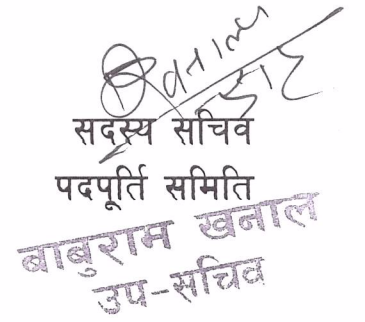 सदस्य सचिव
पदपूर्ति समिति
बाबुराम खनाल
उप-सचिव